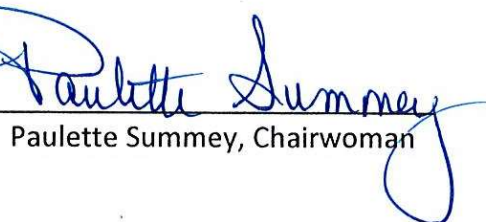 Paulette Summey
Paulette Summey, Chairwoman